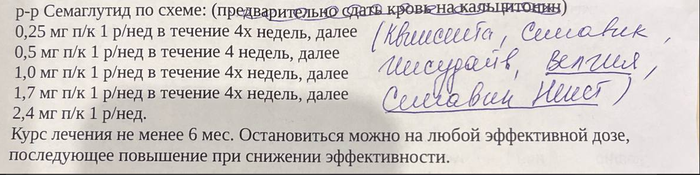 р-р Семаглутид по схеме: (предварительно сдать кровь на кальцитонин)
0,25 мг п/к 1 р/нед в течение 4х недель, далее (Квинсента, Семавик,
0,5 мг п/к 1 р/нед в течение 4 недель, далее
1,0 мг п/к 1 р/нед в течение 4х недель, далее Инсудайв, Велгия,
1,7 мг п/к 1 р/нед в течение 4х недель, далее Семавик Некст)
2,4 мг п/к 1 р/нед.
Курс лечения не менее 6 мес. Остановиться можно на любой эффективной дозе,
последующее повышение при снижении эффективности.